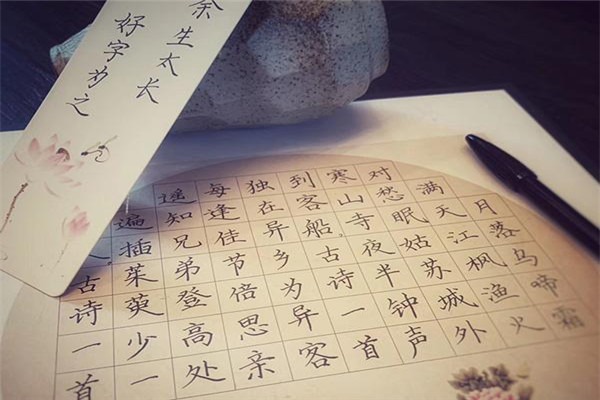 余生太长
好字为之
月落乌啼霜
满天江枫渔火
对愁眠姑苏城外
寒山寺夜半钟声
到客船。古诗一首
独在异乡为异客
每逢佳节倍思亲
遥知兄弟登高处
遍插茱萸少一
人古诗一首